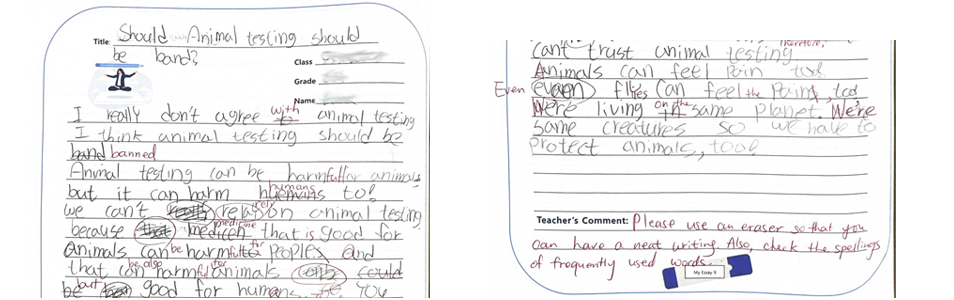 Title: Should Animal testing should
be band?
Class
Grade
Name
I really don't agree with animal testing
I think animal testing should be
band banned
Animal testing can be harmful for animals
but it can harm humans to!
we can't rela rely on animal testing
because that medicen medicine that is good for
Animals can be harmful to for people and
that can be also harmful for animals could
be but good for humans. You
cant trust animal testing therefore,
Animals can feel pain too!
Even even flies can feel the pain, too
We're living in on the same planet. We're
same creatures so we have to
protect animals, too!
Teacher's Comment: Please use an eraser so that you
can have a neat writing. Also, check the spellings
of frequently used words.
My Essay 9